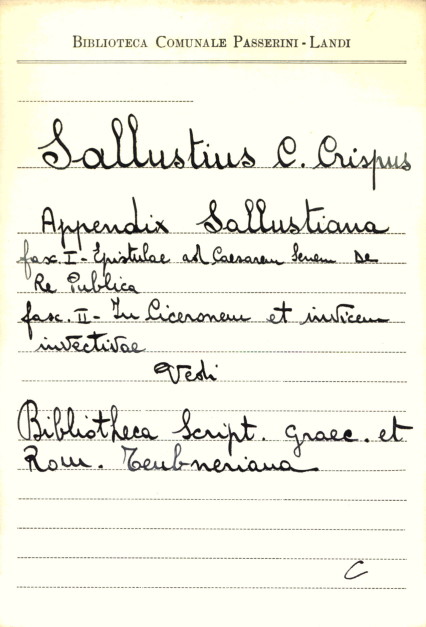 BIBLIOTECA COMUNALE PASSERINI - LANDI
Sallustius C. Crispus
Appendix Sallustiana
fasc. I - Epistulae ad Caesarem Senem de
Re Publica
fasc. II - In Ciceronem et invicem
invectivae
Vedi
Bibliotheca Script. Graec. et
Rom. Teubneriana
C